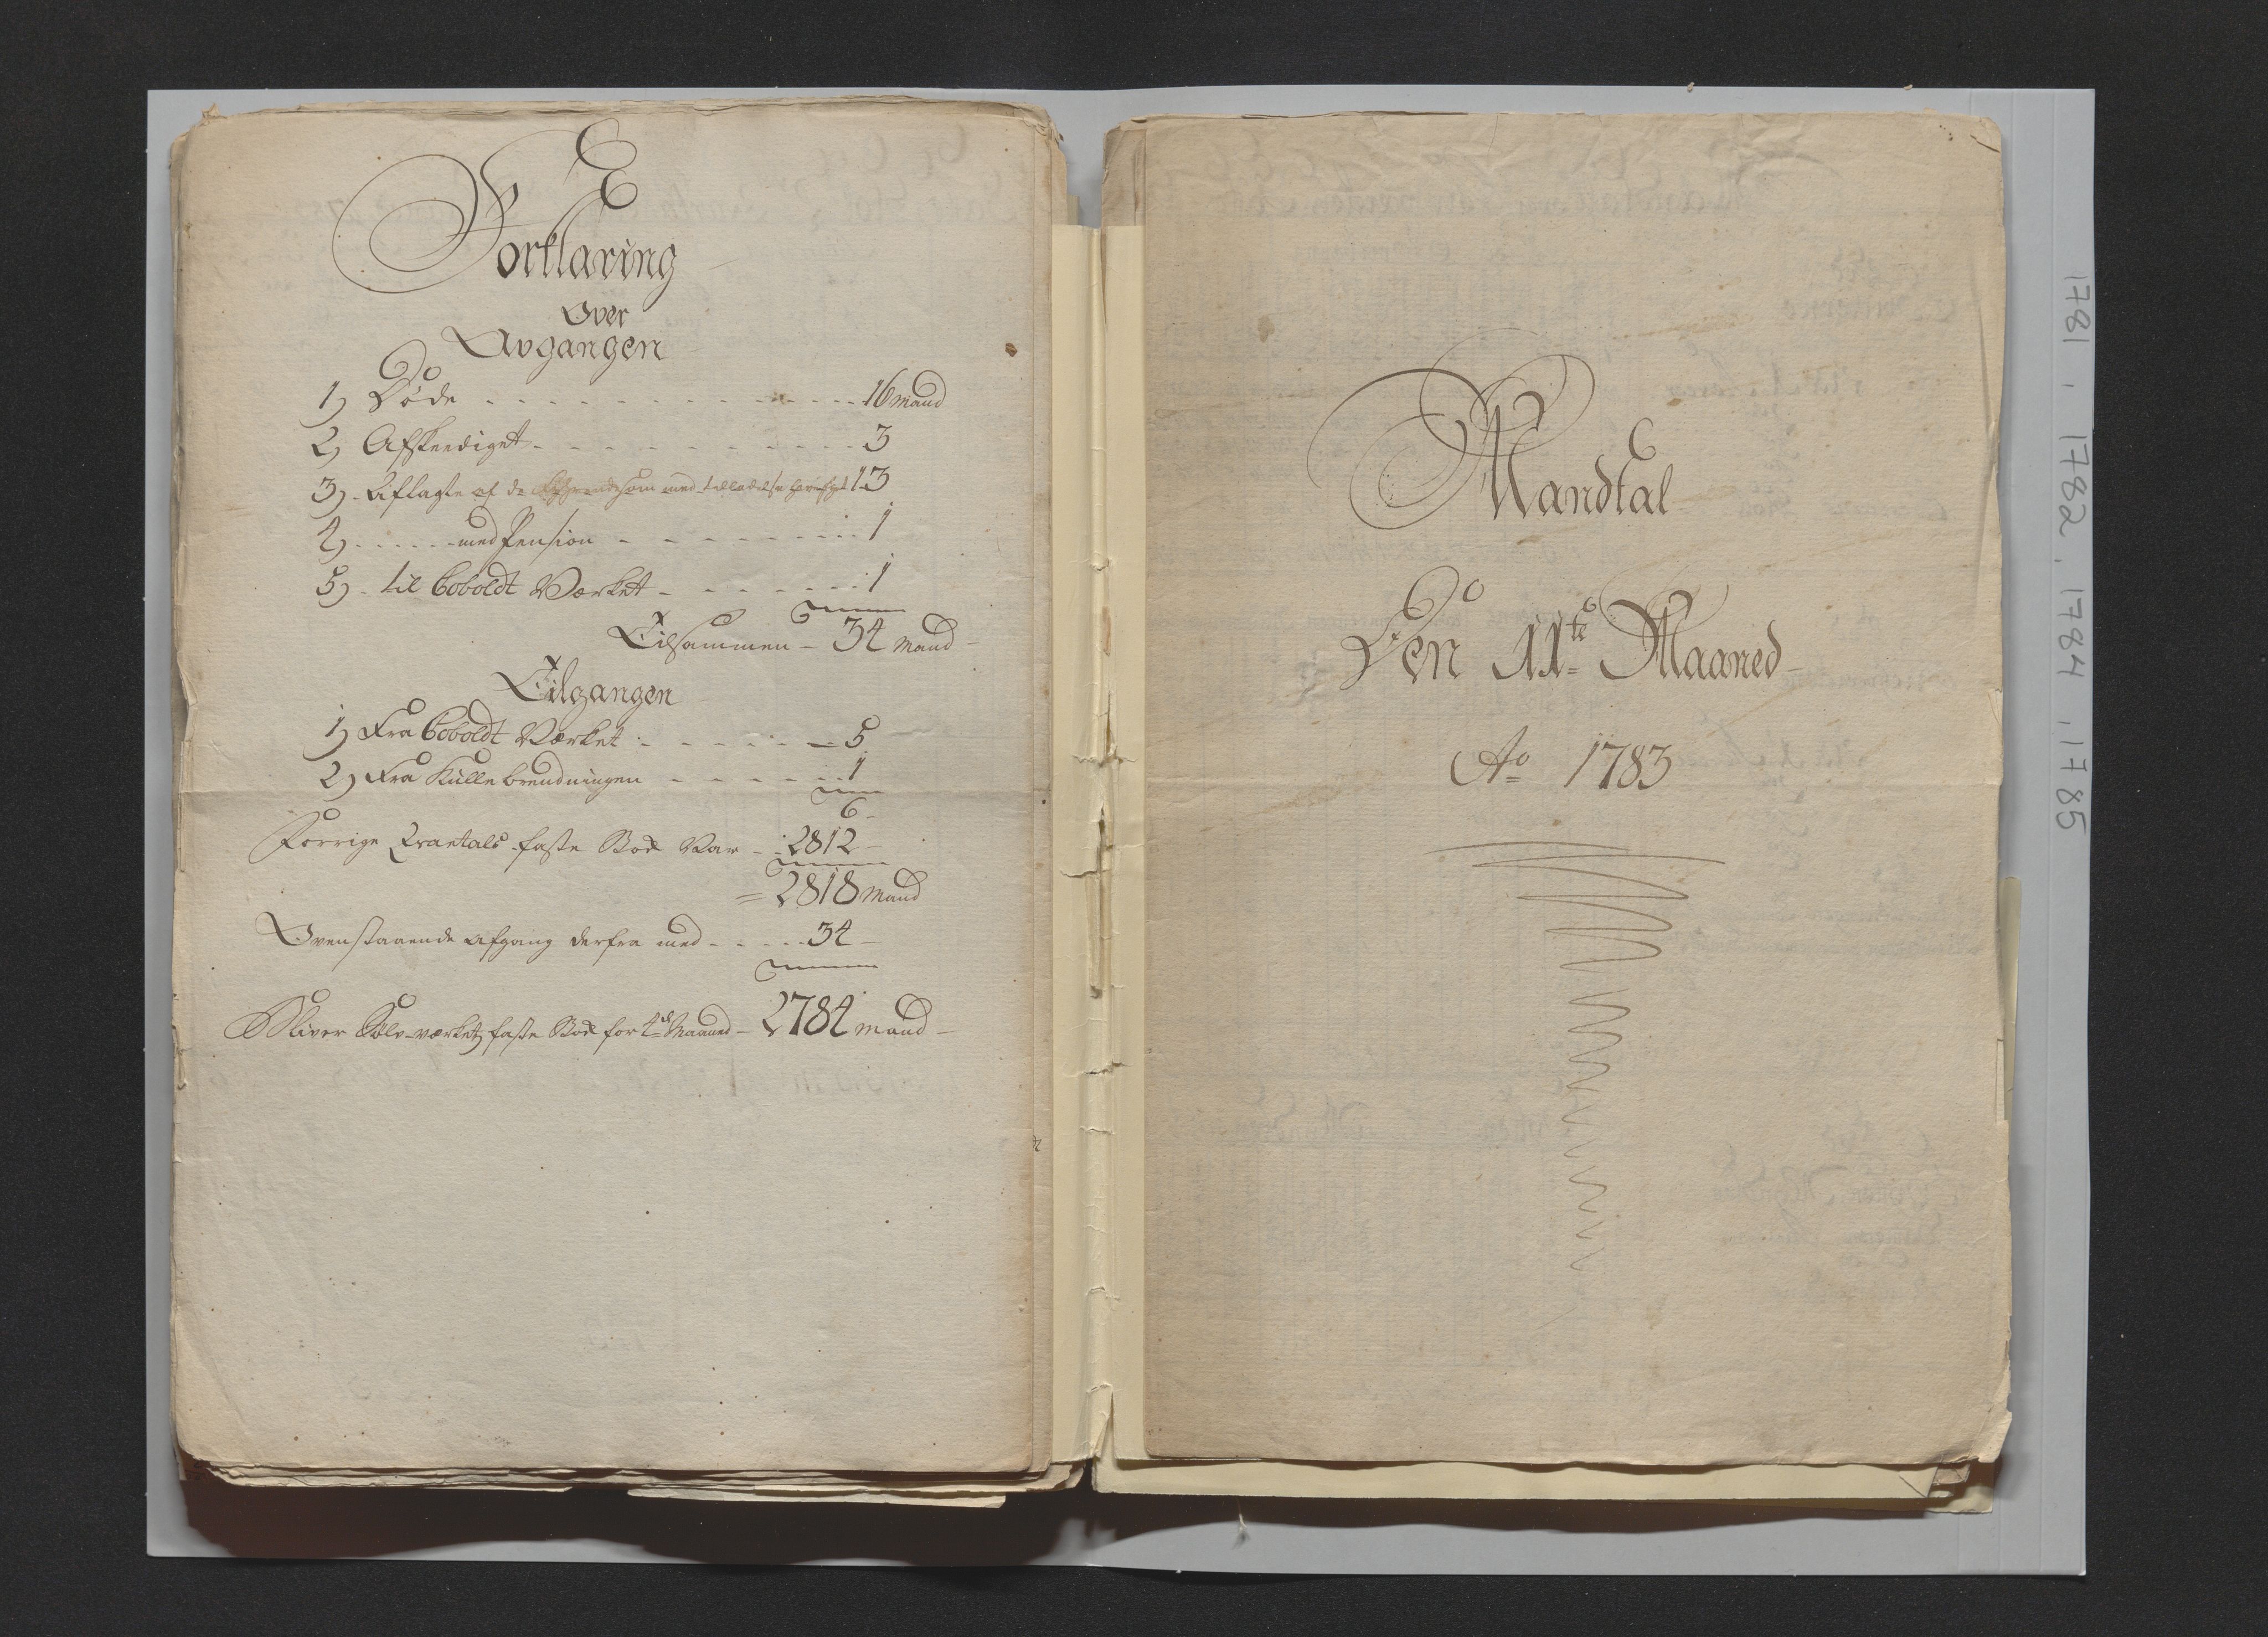 Forklaring
Over
Avgangen
1) Døde - - - - - - - - - - - - 16 mand
2) Afskediget - - - - - - - - - 3
3) - Aflagte af de som med tilladelse 13
4) - - - - - med Pension - - - - - - - - 1
5) - til Coboldt Værket - - - - - - 1
Tilsammen - 34 mand -
Tilgangen
1) Fra Coboldt Værket - - - - - - 5
2) Fra Kullebrendningen - - - - - - 1
6 -
Forrige Qvartals faste Stok Var - 2812 -
= 2818 Mand
Ovenstaaende Afgang derfra med - - - - - 34 -
Bliver Sølv-værkets faste Stok for 4de Maaned - 2784 mand -
Mandtal
Den 11te Maaned
Ao 1783
1781, 1782, 1784, 1785